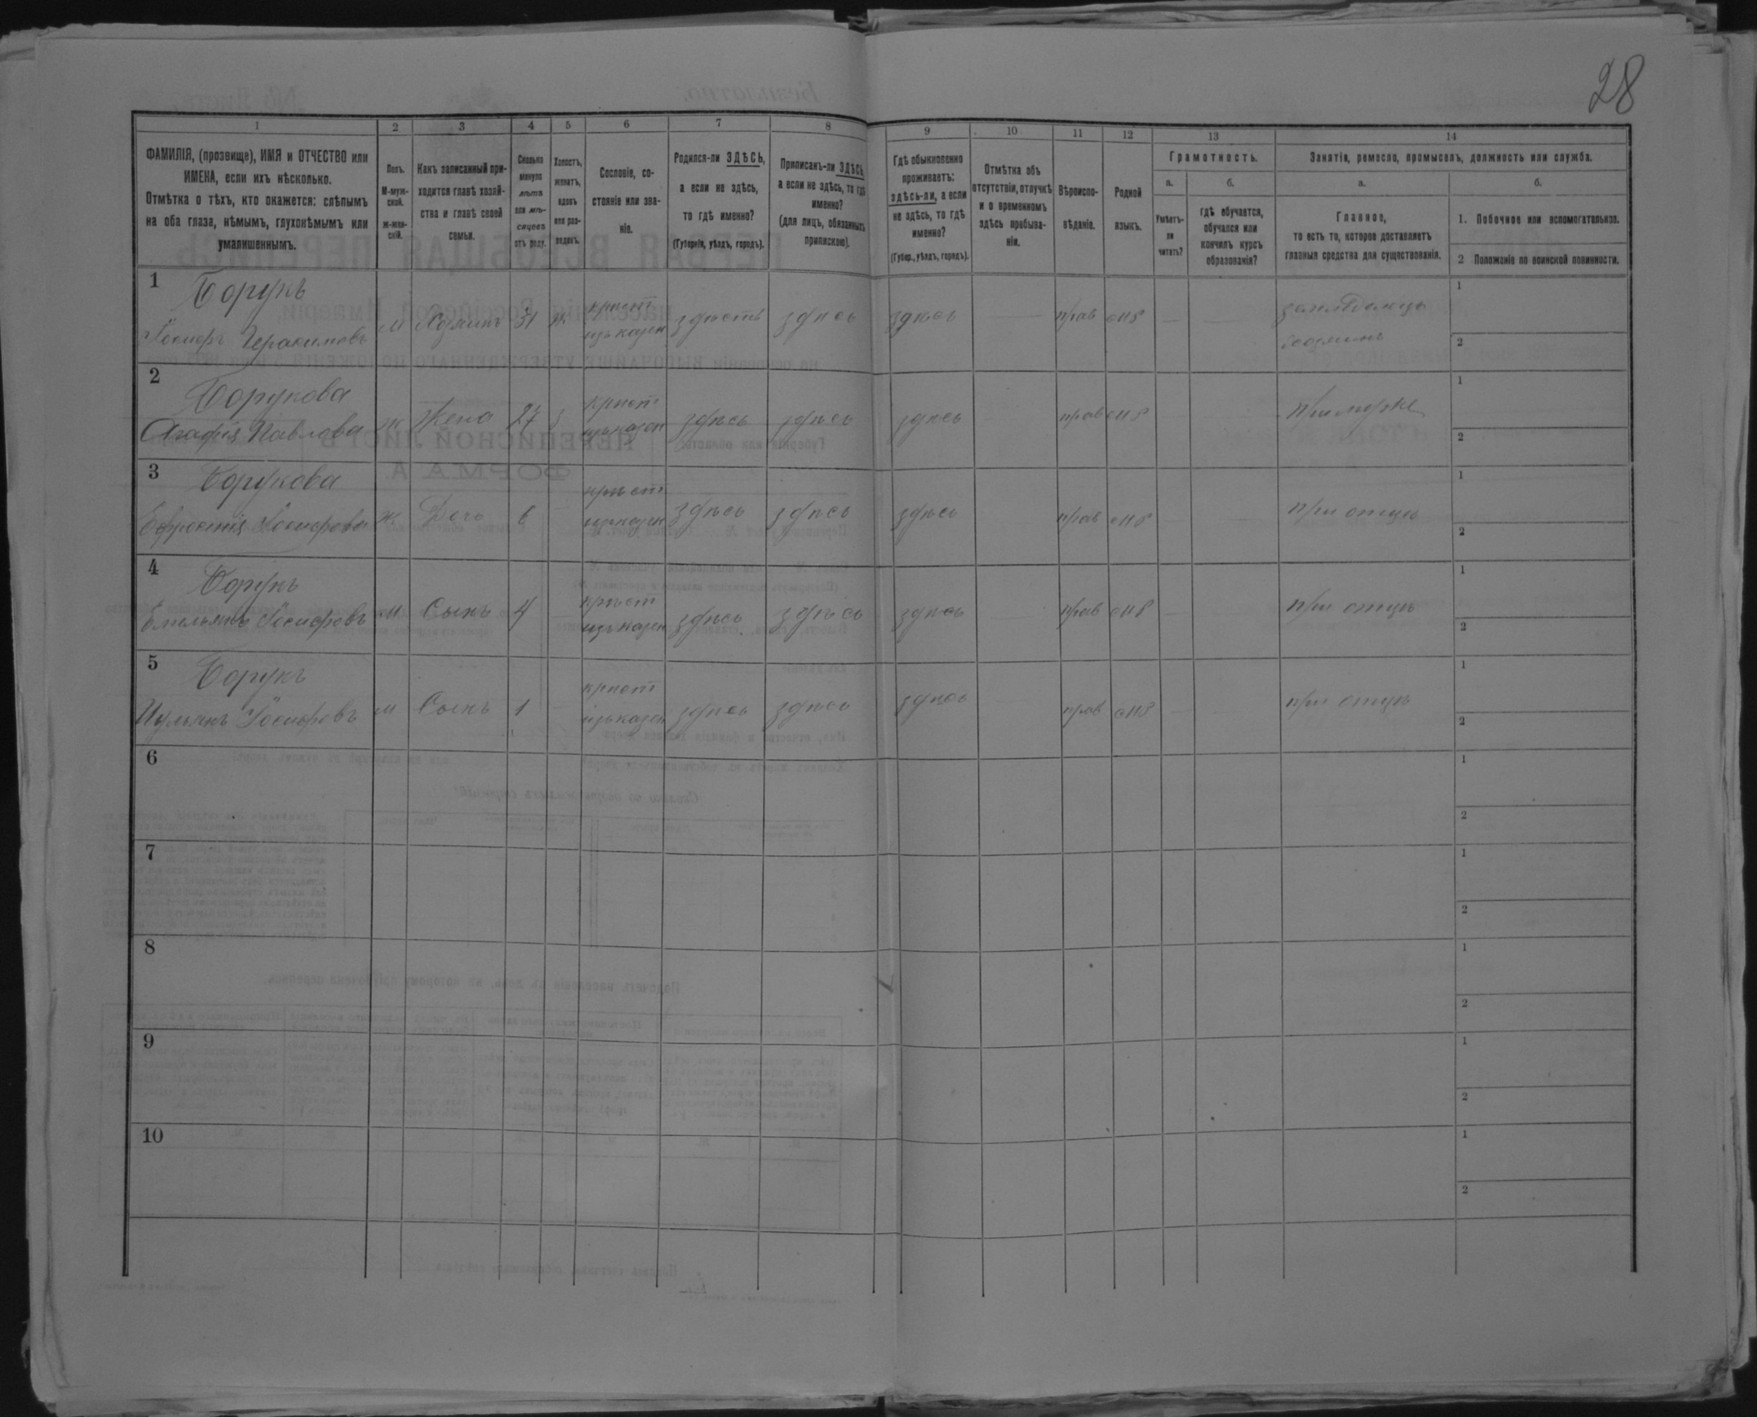 28
1 2 3 4 5 6 7 8 9 10 11 12 13 14
ФАМИЛІЯ, (прозвище), ИМЯ и ОТЧЕСТВО или
ИМЕНА, если ихъ нѣсколько.
Отмѣтка о тѣхъ, кто окажется: слѣпымъ
на оба глаза, нѣмымъ, глухонѣмымъ или
умалишеннымъ.
Полъ.
М-муж-
ской.
Ж-жен-
скій.
Какъ записанный при-
ходится главѣ хозяй-
ства и главѣ своей
семьи.
Сколько
минуло
лѣтъ
или мѣ-
сяцевъ
отъ роду.
Холостъ,
женатъ,
вдовъ
или раз-
веденъ.
Сословіе, со-
стояніе или зва-
ніе.
Родился-ли ЗДѢСЬ,
а если не здѣсь,
то гдѣ именно?
(Губернія, уѣздъ, городъ).
Приписанъ-ли ЗДѢСЬ,
а если не здѣсь, то гдѣ
именно?
(для лицъ, обязанныхъ
припискою).
Гдѣ обыкновенно
проживаетъ:
здѣсь-ли, а если
не здѣсь, то гдѣ
именно?
(Губер., уѣздъ, городъ).
Отмѣтка объ
отсутствіи, отлучкѣ
и о временномъ
здѣсь пребыва-
ніи.
Вѣроиспо-
вѣданіе.
Родной
языкъ.
Грамотность.
а.
Умѣетъ-
ли
читать?
б.
гдѣ обучается,
обучался или
кончилъ курсъ
образованія?
Занятія, ремесло, промыселъ, должность или служба.
а.
Главное,
то есть то, которое доставляетъ
главныя средства для существованія.
б.
1. Побочное или вспомогательное.
2 Положеніе по воинской повинности.
1 Борукъ
Іосифъ Герасимовъ м Хозяинъ 31 ж крест здѣсь здѣсь здѣсь прав
1
2
2 Борукова
Агафія Павлова ж Жена 27 крест здѣсь здѣсь здѣсь прав при мужѣ
1
2
3 Борукова
Ефросинія Іосифова ж Доч 6 крест здѣсь здѣсь здѣсь прав при отцѣ
1
2
4 Борукъ
Емельянъ Іосифовъ м Сынъ 4 крест здѣсь здѣсь здѣсь прав при отцѣ
1
2
5 Борукъ
Іосифовъ м Сынъ 1 крест здѣсь здѣсь здѣсь прав при отцѣ
1
2
6
1
2
7
1
2
8
1
2
9
1
2
10
1
2